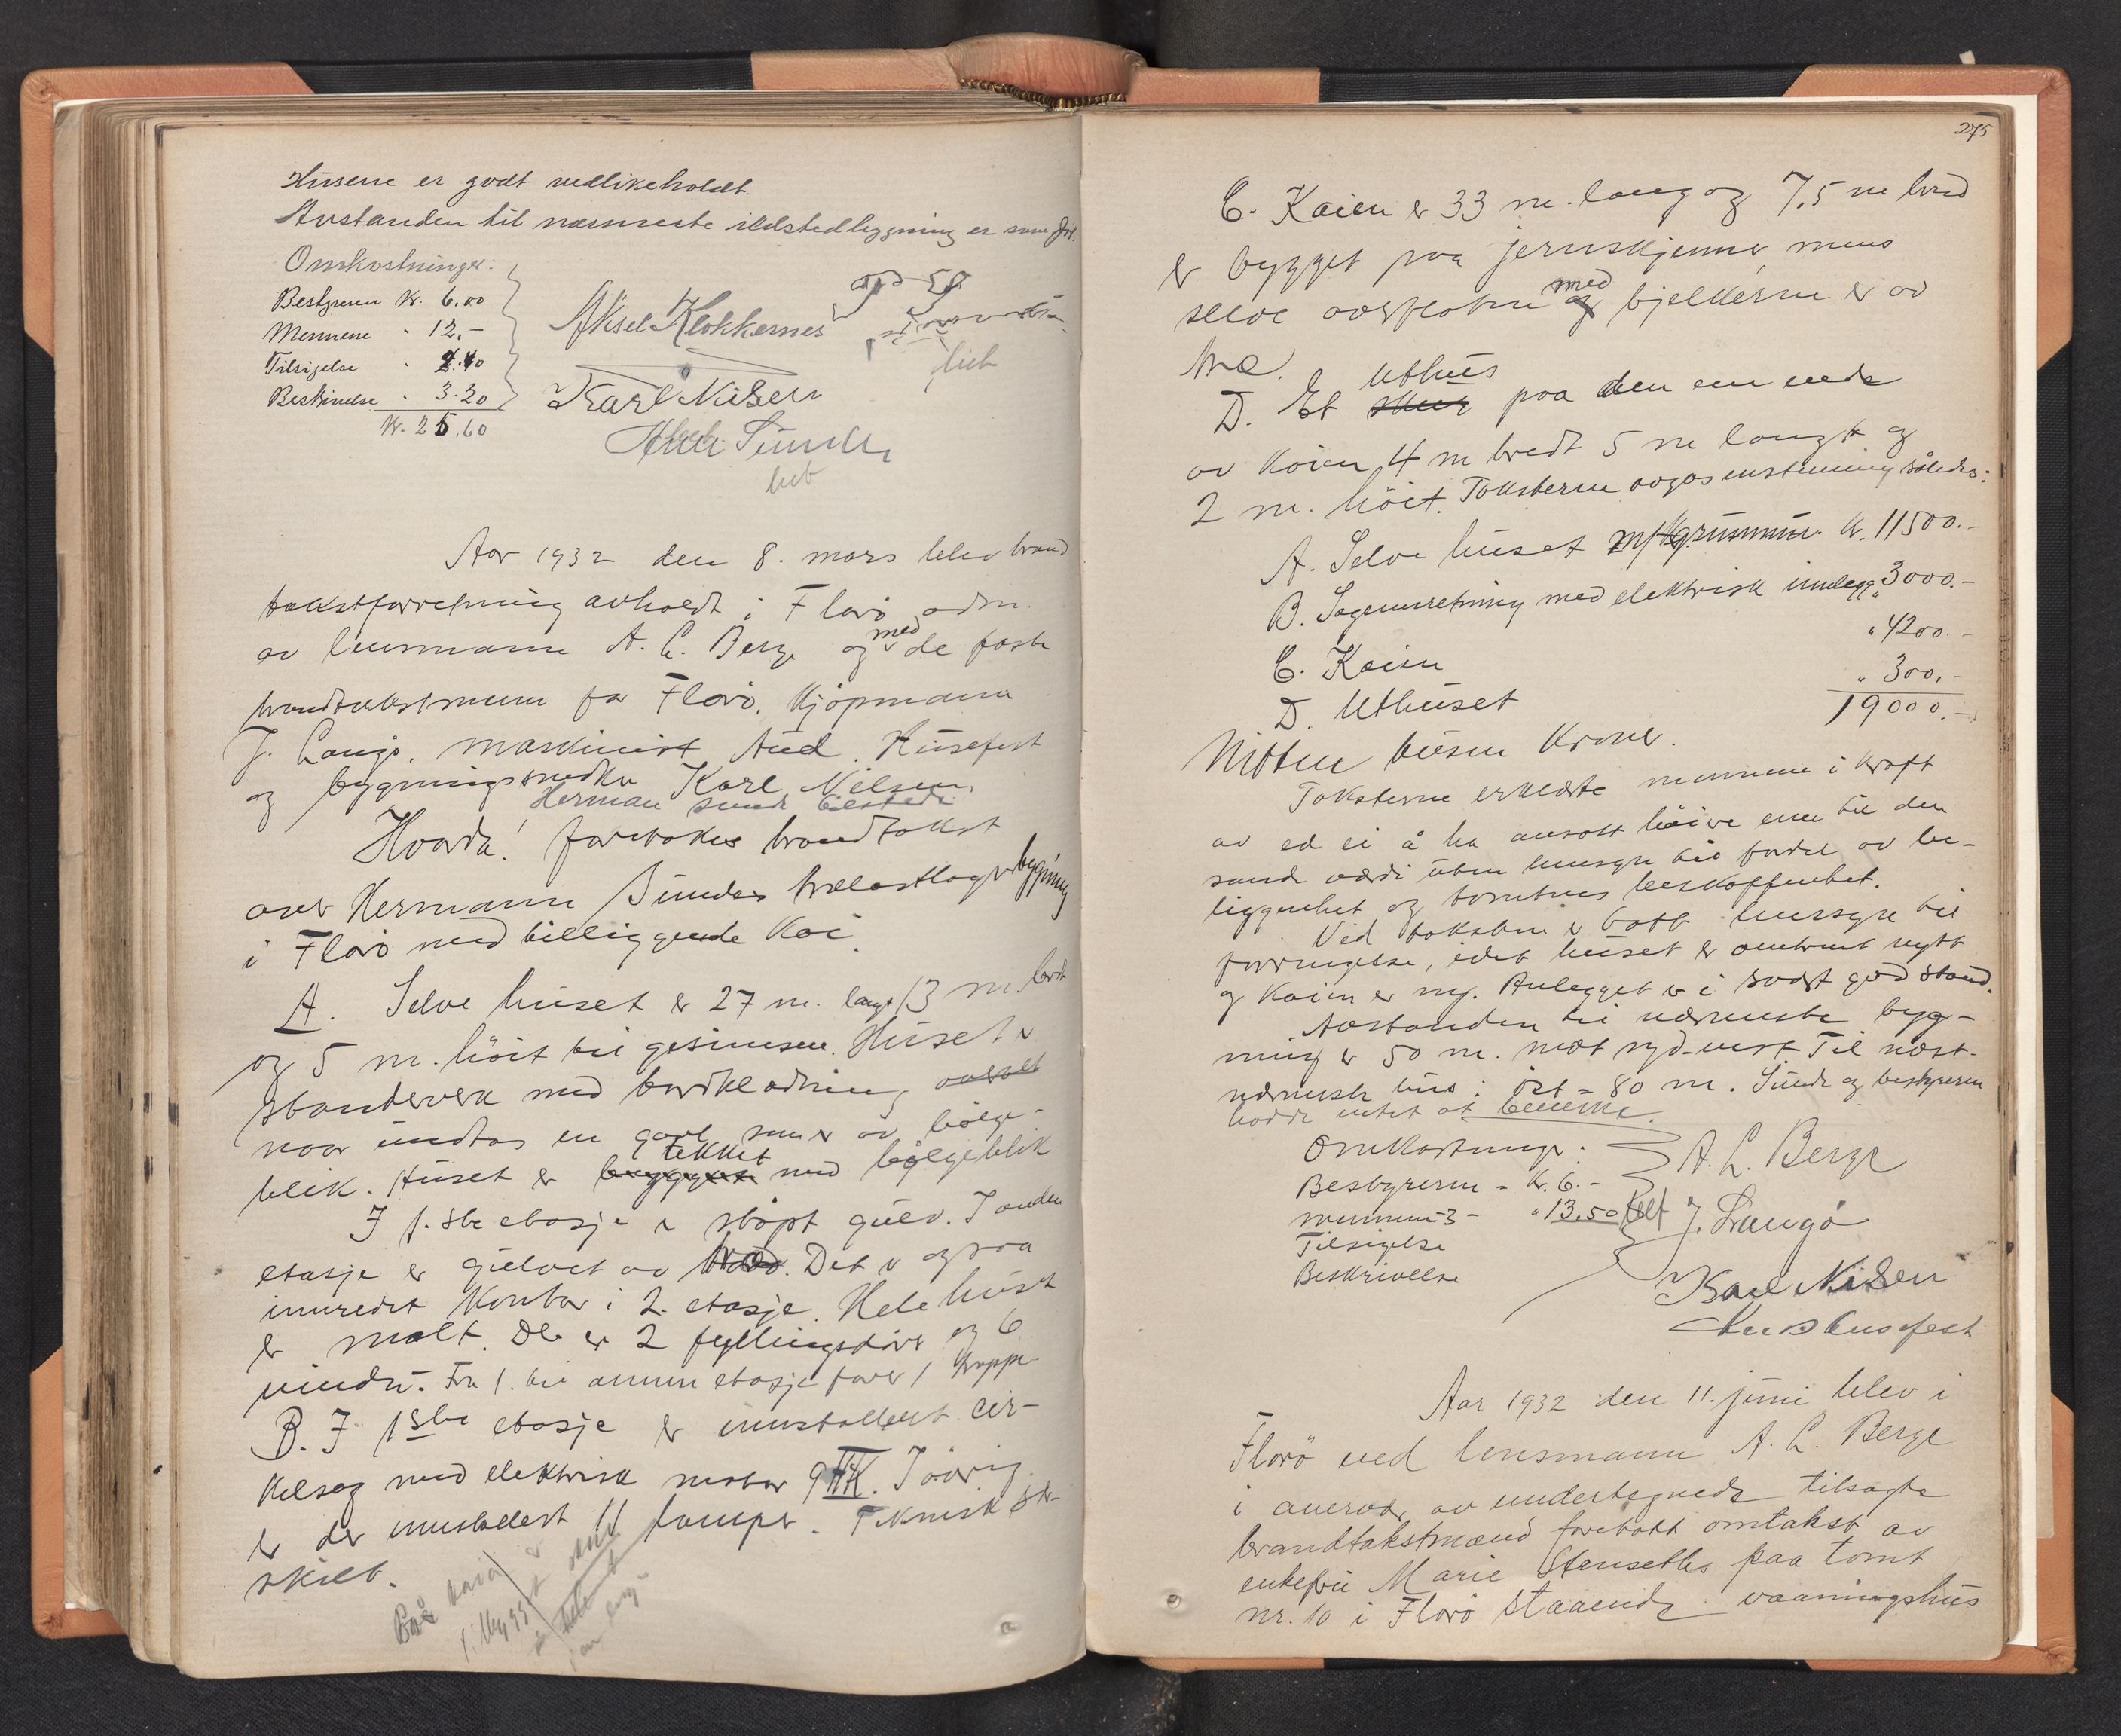 Husene er godt vedlikeholdt.
Avstanden til nærmeste ildstedbygning er som før.
Omkostninger:
Bestyreren Kr. 6.00
Mennene " 12,-
Tilsigelse " 4.40
Beskrivelse " 3.20
Kr. 25.60
Aksel Klokkernes
Karl Nilsen
Sunde
Aar 1932 den 8. mars blev brand
takstforretning avholdt i Florø adm.
av lensmann A. L. Berge og med de faste
brandtakstmenn for Florø, kjøpmann
J. Langø, maskinist And. Husefest
og bygningssnedker Karl Nilsen.
Herman Sunde tilstede
Hvorda! foretokes brandtakst
over Hermann Sundes trælastlagerbygning
i Florø med tilliggende kai.
A. Selve huset er 27 m. langt 13 m. bredt
og 5 m. höit til gesimsen. Huset er
standerverk med bordklædning, overalt
naar undtas en gavl som er av bölge-
blik. Huset er bygget tekket med bølgeblik
I 1.ste etasje er støpt gulv. I anden
etasje er gulvet av træ. Det er ogsaa
innredet kontor i 2. etasje. Hele huset
er malt. Der er 2 fyllingsdøre og 6
vindu. Fra 1. til annen etasje fører 1 trappe
B. I 1ste etasje er innstallert cir-
kelsag med elektrisk motor 9 HK. I øvrig
er der innstallert 11 lamper. Teknisk be-
skreb.
275
C. Kaien er 33 m. lang og 7,5 m bred
er bygget paa jernskjenner, mens
selve overflaten og med bjelkerne er av
træ.
D. Et skur Uthus paa den ene ende
av kaien 4 m bredt 5 m langt og
2 m. höit. Taksterne avgas enstemmig således:
A. Selve huset m/grunnmur Kr. 11500.-
B. Sagennretning med elektrisk innlegg " 3000.-
C. Kaien " 4200.-
D. Uthuset " 300,-
19000.-
Nitten tusen Kroner.
Taksterne erklærte mennene i kraft
av ed ei å ha ansatt høiere enn til den
sande værdi uten hensyn til fordel av be-
liggenhet og tomtens beskaffenhet.
Ved taksten er tatt hensyn til
forringelse, idet huset er omtrent nytt
og kaien er ny. Anlegget er i svært god stand.
Avstanden til nærmeste byg-
ning er 50 m. mot syd-vest. Til næst-
nærmeste hus i öst = 80 m. Sunde og bestyreren
hadde intet at bemerke.
Omkostninger:
Bestyreren - Kr. 6.-
mennene 3 - " 13.50
Tilsigelse
Beskrivelse
A. L. Berge
J. Langø
Karl Nilsen
And Husefest
Aar 1932 den 11. juni blev i
Florö ved lensmann A. L. Berge
i nærvær av undertegnede tilsagte
brandtakstmænd foretatt omtakst av
enkefru Marie Stenseths paa tomt
nr. 10 i Florø staaende vaaningshus